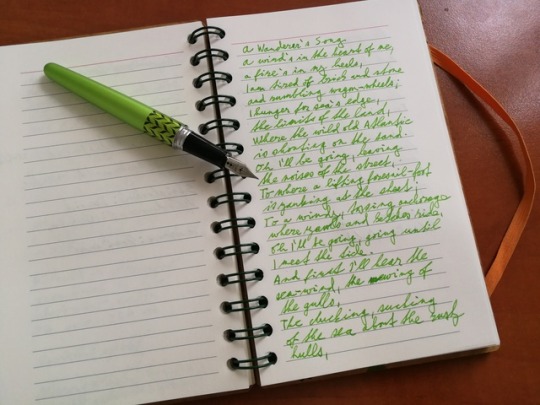 A Wanderer's Song
A wind's in the heart of me,
a fire's in my heels,
I am tired of brick and stone
and rumbling wagon-wheels;
I hunger for sea's edge,
the limits of the land,
Where the wild old Atlantic
is shouting on the sand.
Oh I'll be going, leaving
the noises of the street,
To where a lifting foresail-foot
is yanking at the sheet;
To a windy, tossing anchorage
where yawls and ketches ride,
Oh I'll be going, going until
I meet the tide.
And first I'll hear the
sea-wind, the mewing of
the gulls,
The clucking, sucking
of the sea about the rusty
hulls,